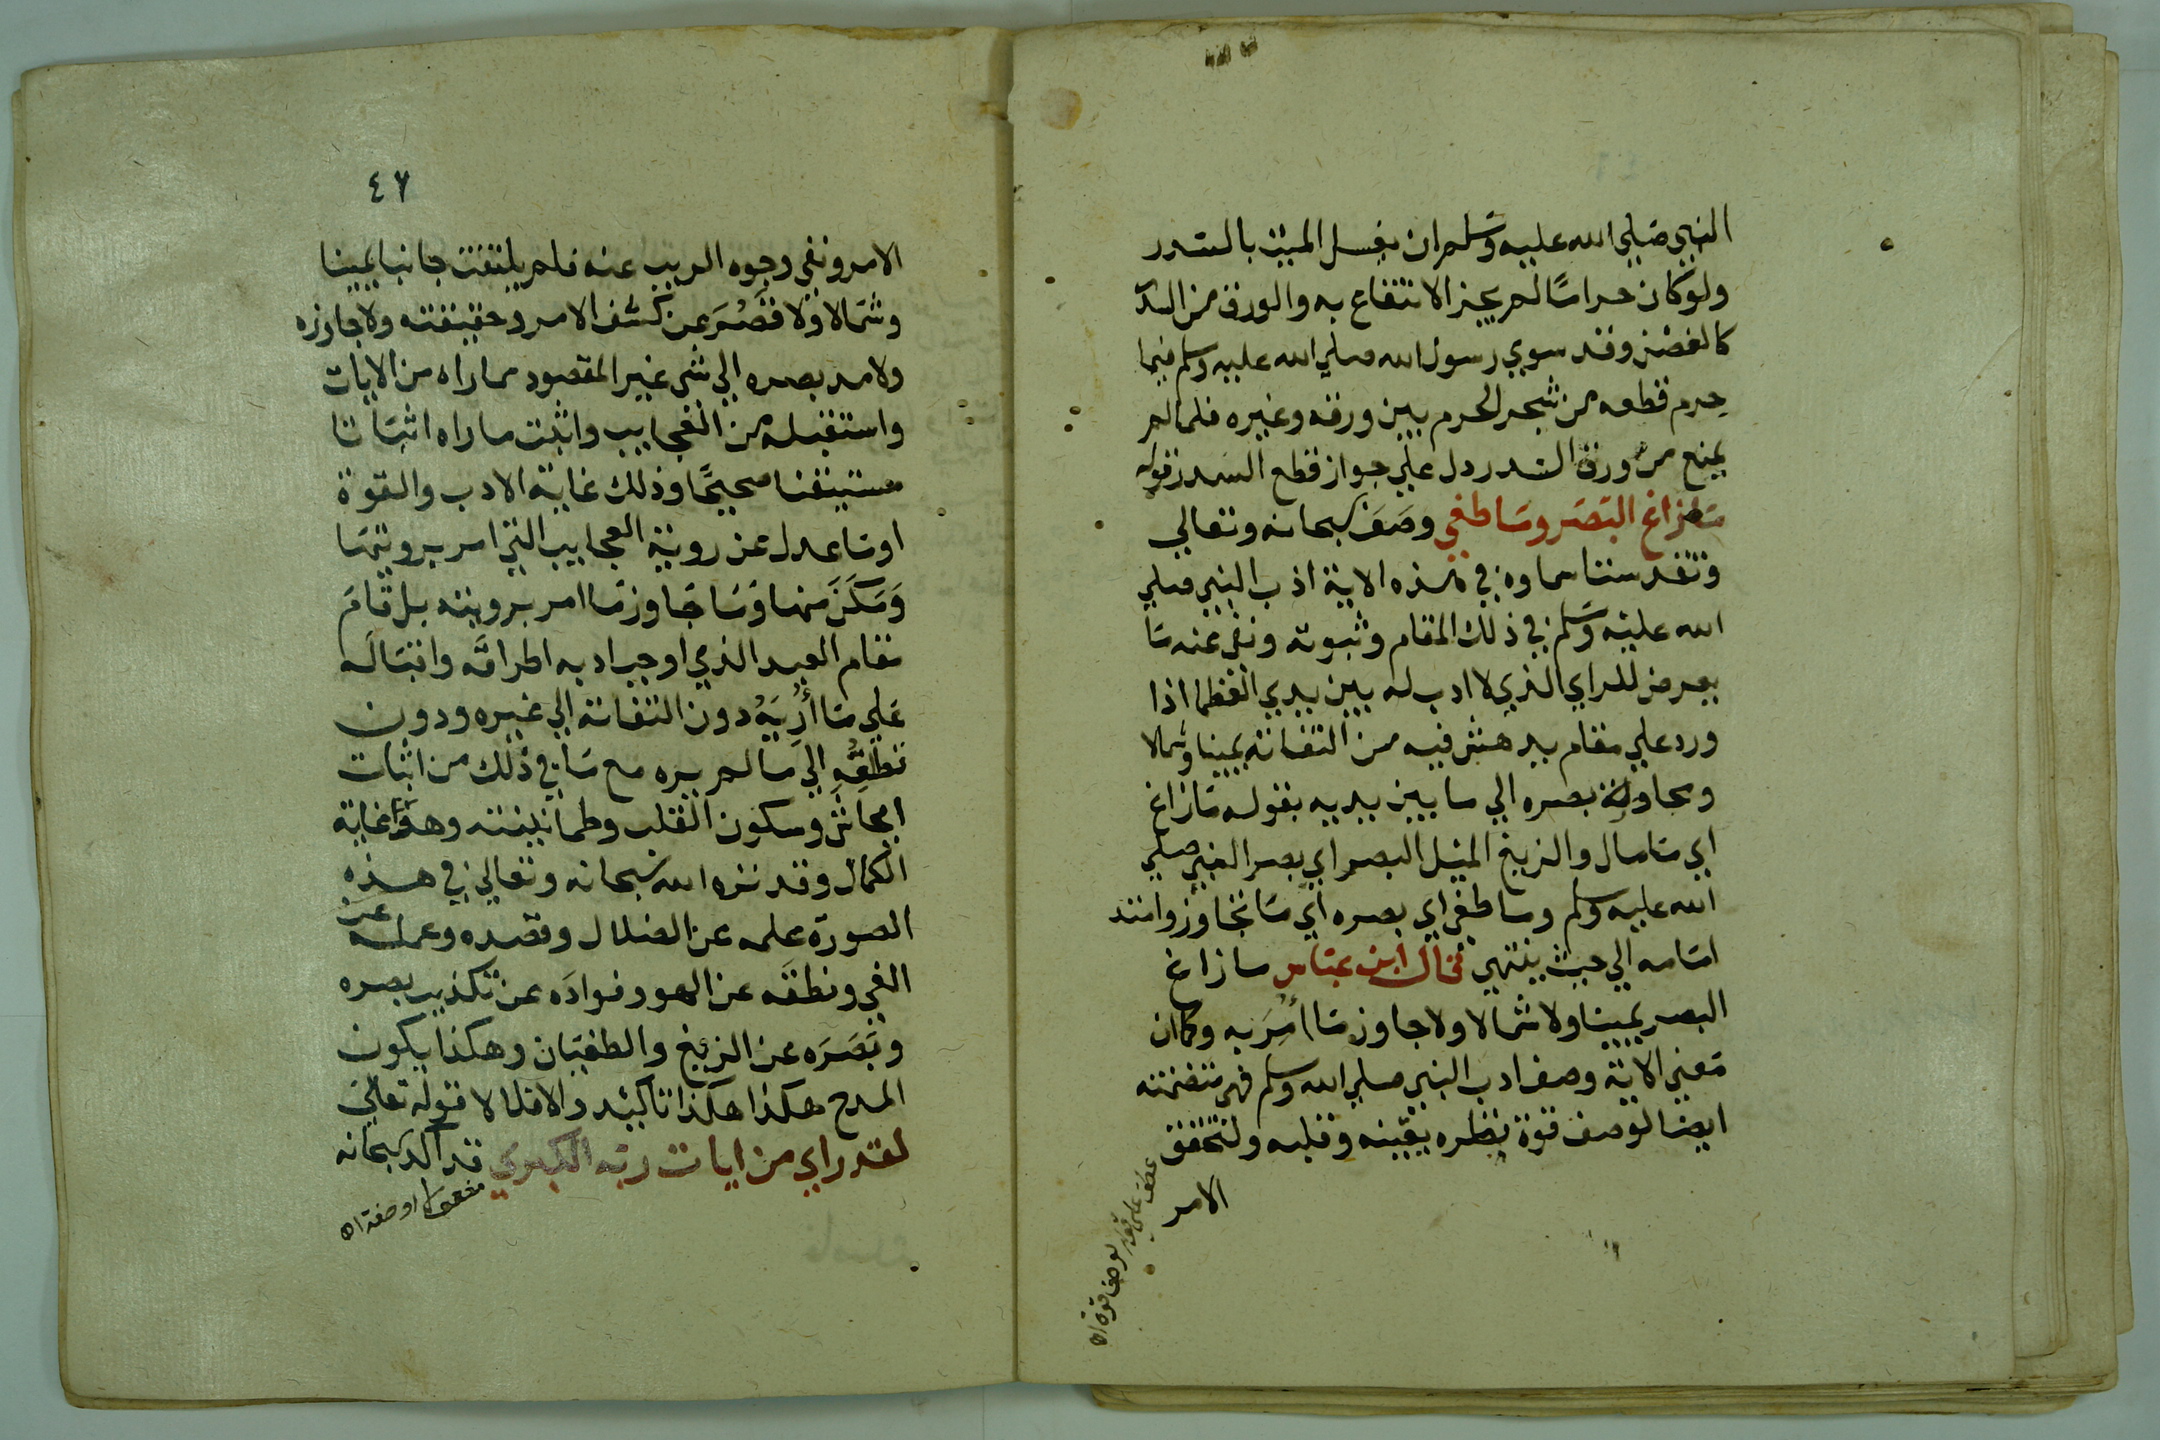 النبي صلي الله عليه وسلم ان يغسل الميت بالسدر
ولو كان حراما لم يجز الانتفاع به والورق من السدر
كالغصن وقد سوي رسول الله صلي الله عليه وسلم فيما
حرم قطعه من شجر الحرم بين ورقه وغيره فلما لم
يمنع من ورق السدر دل علي جواز قطع السدر قوله
ما زاغ البصر وما طغي وصف سبحانه وتعالي
وتقدست اسماوه في هذه الاية ادب النبي صلي
الله عليه وسلم في ذلك المقام وثبوته ونفي عنه ما
يعرض للراي الذي لا ادب له بين يدي العظما اذا
ورد علي مقام يدهش فيه من التفاته يمينا وشمالا
ومجاوزة بصره الي ما بين يديه بقوله ما زاغ
اي ما مال والزيغ الميل البصر اي بصر النبي صلي
الله عليه وسلم وما طغي اي بصره اي ما تجاوز وامتد
امامه الي حيث ينتهي فقال ابن عباس ما زاغ
البصر يمينا ولا شمالا ولا جاوز ما امر به وكان
معني الاية وصف ادب النبي صلي الله وسلم فهي متضمنة
ايضا لوصف قوة نظره يقينه وقلبه ولتحقق
الامر
عطف علي قوله لوصف قوة اه
٤٦
الامر ونفي وجوه الريب عنه فلم يلتفت جانبا يمينا
وشمالا ولا قصر عن كشف الامر وحقيقته ولا جاوزه
ولا مد بصره الي شي غير المقصود مما راه من الايات
واستقبله من العجايب واثبت ما راه اثباتا
مستيقنا صحيحا وذلك غاية الادب والقوة
او ما عدل عن روية العجايب التي امر برويتها
ومكن منها وما جاوز ما امر برويته بل قام
مقام العبد الذي اوجب ادبه اطراقه واقباله
علي ما أريه دون التفاته الي غيره ودون
تطلعه الي ما لم يره مع ما في ذلك من اثبات
الجاش وسكون القلب وطمانينته وهذا غاية
الكمال وقد نزه الله سبحانه وتعالي في هذه
الصورة علمه عن الضلال وقصده وعمله عن
الغي ونطقه عن الهو وفواده عن تكذيب بصره
وبصره عن الزيغ والطغيان وهكذا يكون
المدح هكذا هكذا تاكيد والا فلا لا قوله تعالي
لقد راي من ايات ربه الكبري قد اكد سبحانه
مفعول او صفة اه